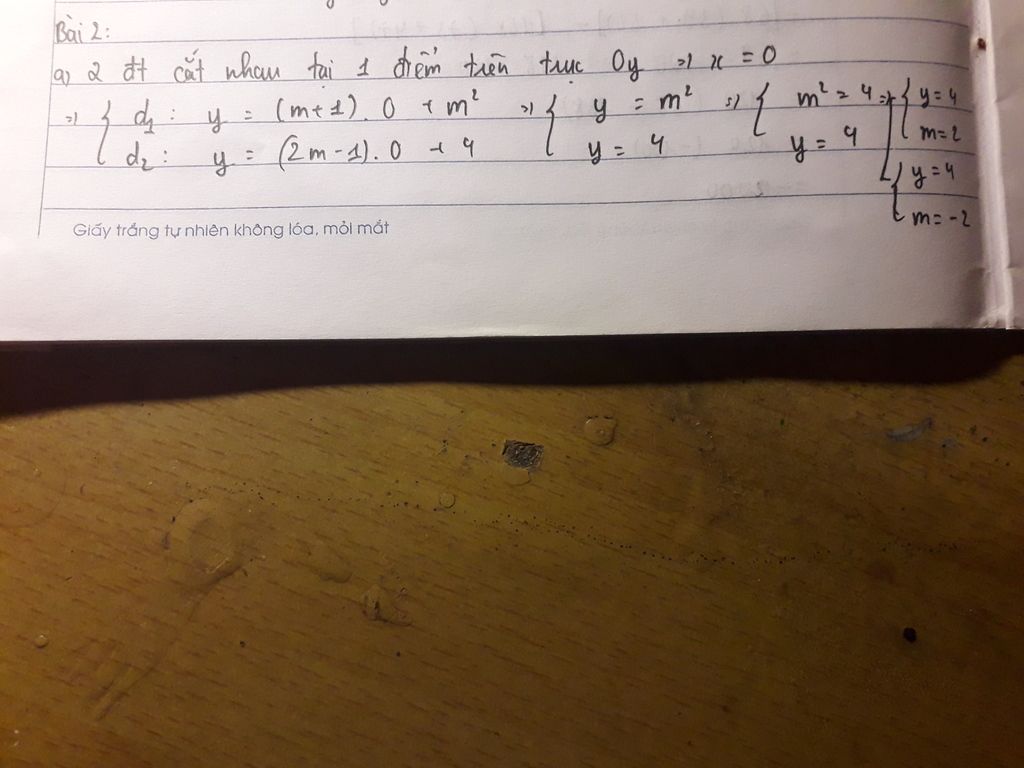 Bài 2:
a) 2 đt cắt nhau tại 1 điểm trên trục Oy => x = 0
=> { d1 : y = (m+1). 0 + m² => { y = m² => { m² = 4 => [ { y = 4
d2 : y = (2m-1). 0 + 4 y = 4 y = 4 m = 2
{ y = 4
m = -2
Giấy trắng tự nhiên không lóa, mỏi mắt